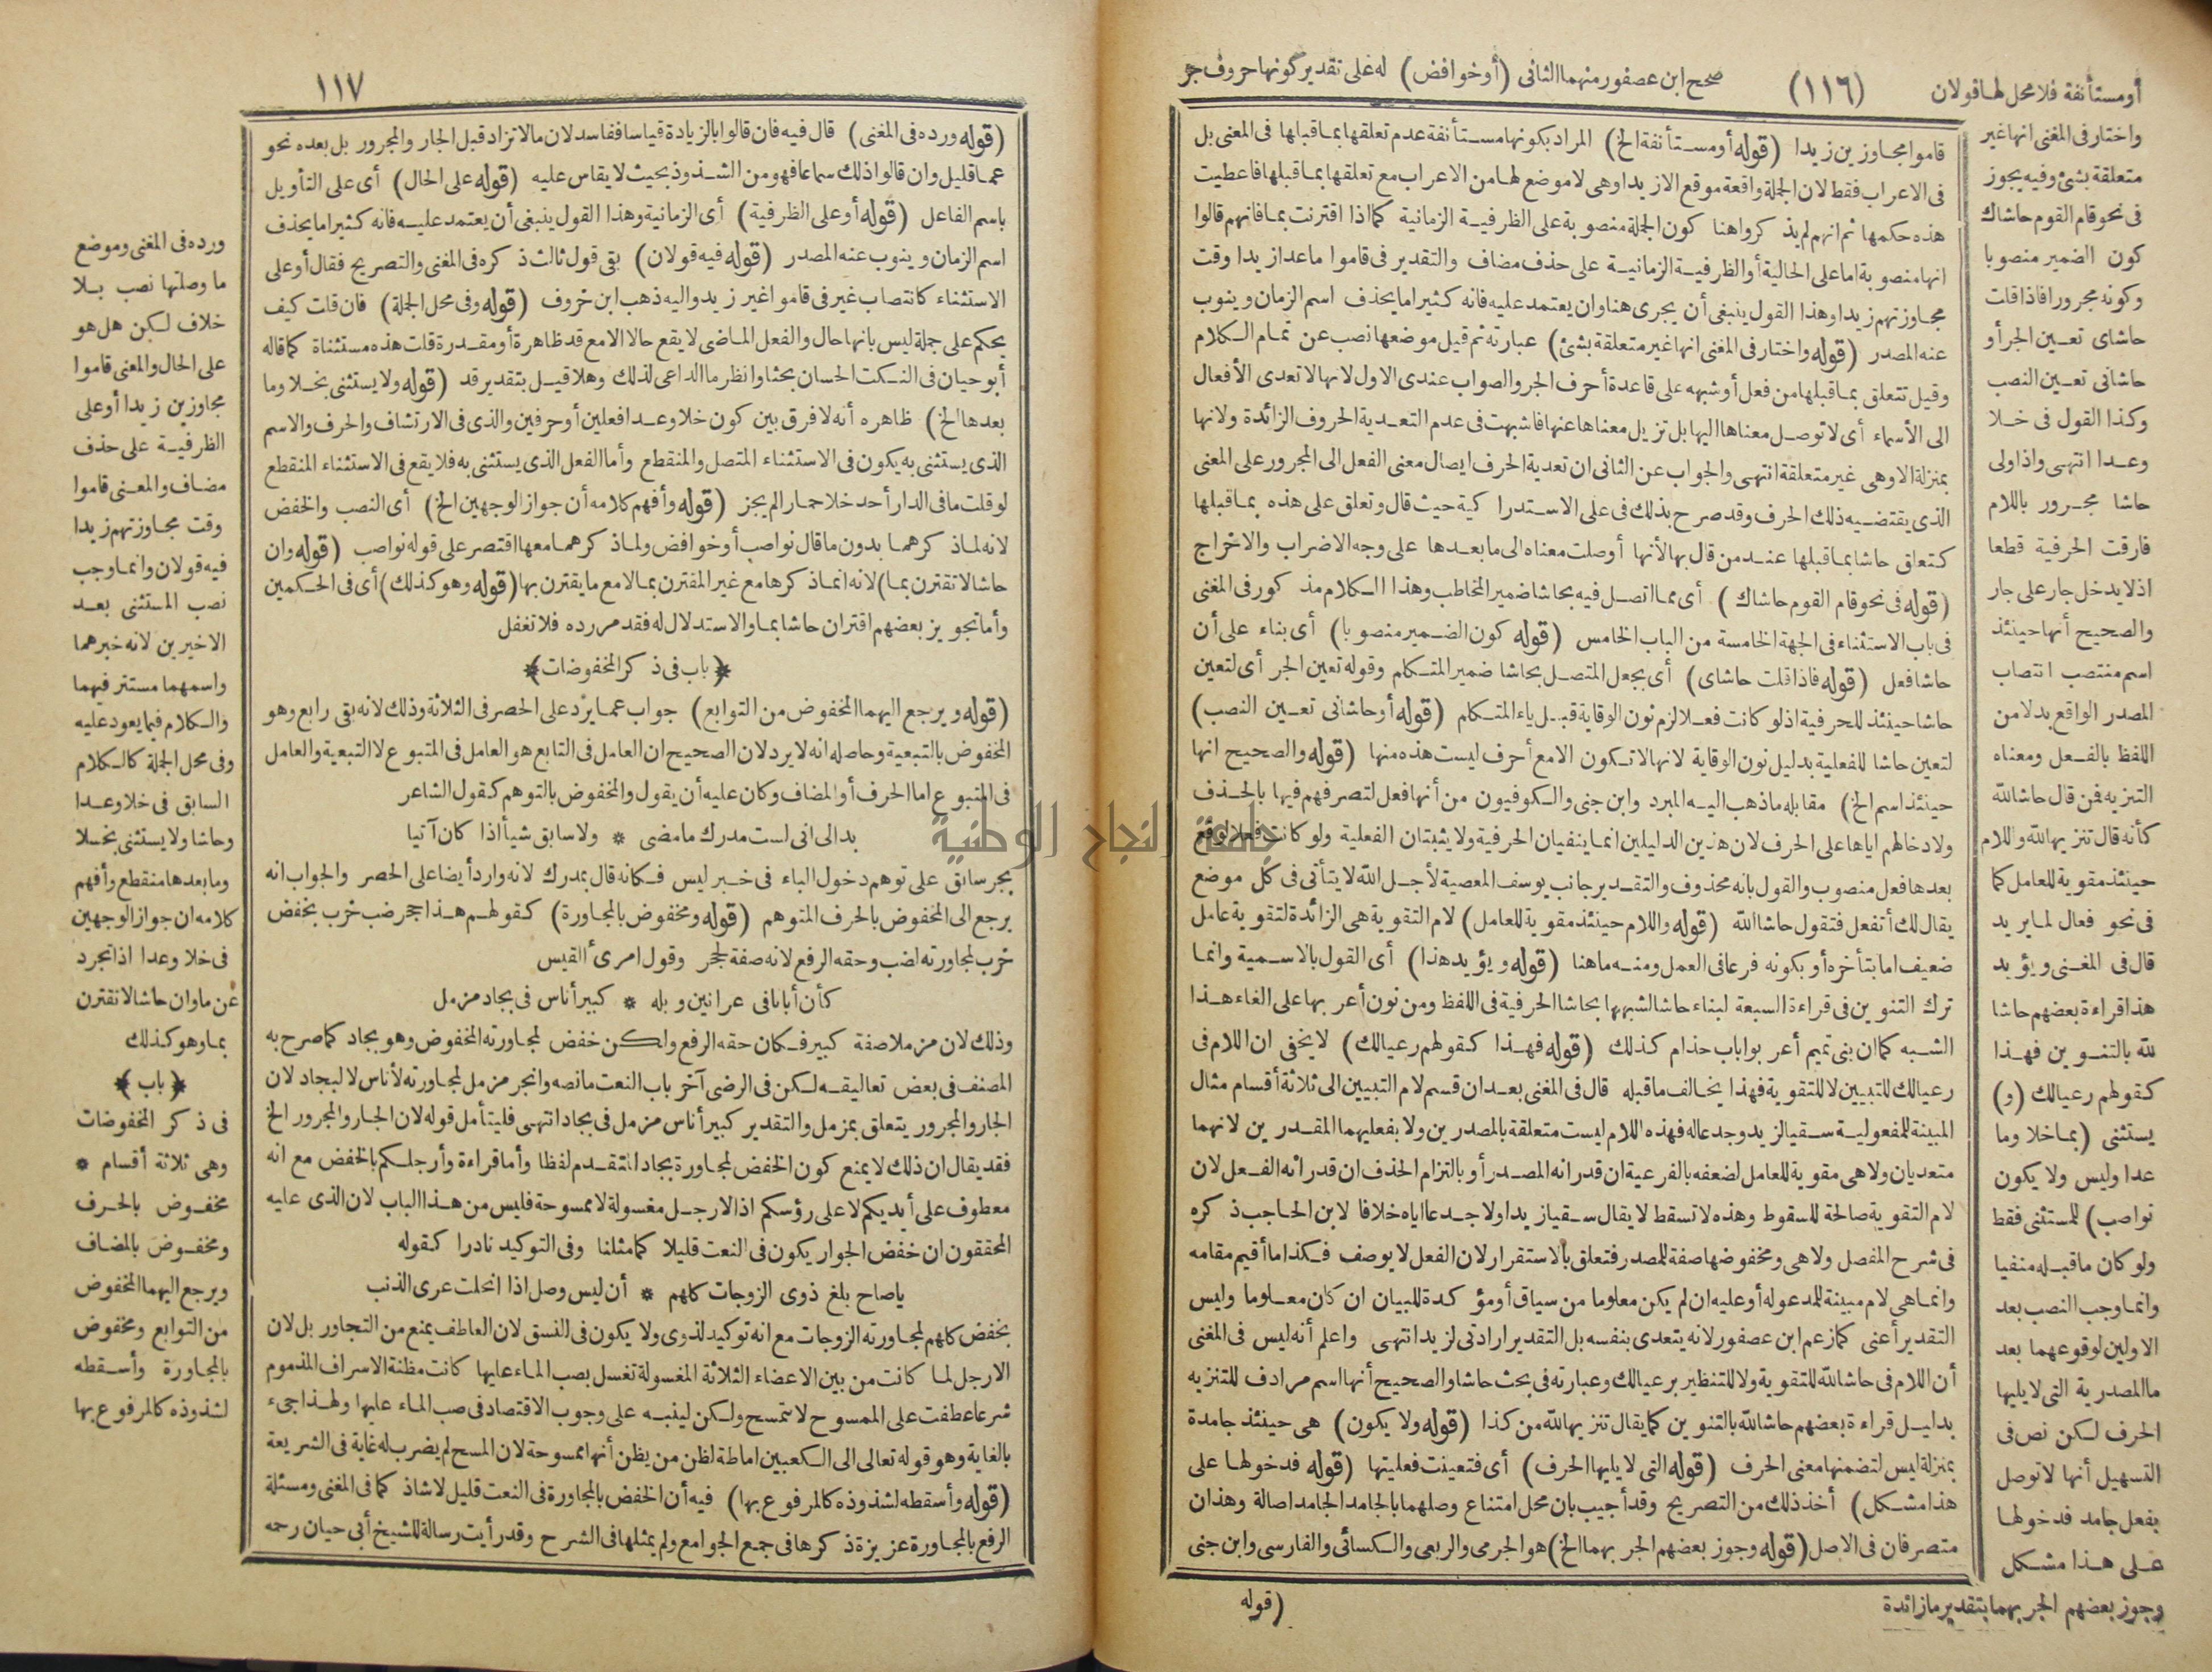 أو مستأنفة فلا محل لها قولان (١١٦) صحح ابن عصفور منهما الثانى (أو خوافض) له على تقدير كونها حروف جر
واختار فى المغنى انها غير
متعلقة بشئ وفيه يجوز
فى نحو قام القوم حاشاك
كون الضمير منصوبا
وكونه مجرورا فاذا قلت
حاشاى تعين الجر أو
حاشانى تعين النصب
وكذا القول فى خلا
وعدا انتهى واذا ولى
حاشا مجرور باللام
فارقت الحرفية قطعا
اذ لا يدخل جار على جار
والصحيح أنها حينئذ
اسم منتصب انتصاب
المصدر الواقع بدلا من
اللفظ بالفعل ومعناه
التنزيه فمن قال حاشا لله
كأنه قال تنزيها لله واللام
حينئذ مقوية للعامل كما
فى نحو فعال لما يريد
قال فى المغنى ويؤيد
هذا قراءة بعضهم حاشا
لله بالتنوين فهذا
كقولهم رعيا لك (و)
يستثنى (بما خلا وما
عدا وليس ولا يكون
نواصب) للمستثنى فقط
ولو كان ما قبله منفيا
وانما وجب النصب بعد
الاولين لوقوعهما بعد
ما المصدرية التى لا يليها
الحرف لكن نص فى
التسهيل أنها لا توصل
بفعل جامد فدخولها
على هذا مشكل
وجوز بعضهم الجر بهما بتقدير ما زائدة
قاموا مجاوزين زيدا (قوله أو مستأنفة الخ) المراد بكونها مستأنفة عدم تعلقها بما قبلها فى المعنى بل
فى الاعراب فقط لان الجملة واقعة موقع الا زيدا وهى لا موضع لها من الاعراب مع تعلقها بما قبلها فاعطيت
هذه حكمها ثم انهم لم يذكروا هنا كون الجملة منصوبة على الظرفية الزمانية كما اذا اقترنت بما فانهم قالوا
انها منصوبة اما على الحالية أو الظرفية الزمانية على حذف مضاف والتقدير فى قاموا ما عدا زيدا وقت
مجاوزتهم زيدا وهذا القول ينبغى أن يجرى هنا وان يعتمد عليه فانه كثيرا ما يحذف اسم الزمان وينوب
عنه المصدر (قوله واختار فى المغنى انها غير متعلقة بشئ) عبارته ثم قيل موضعها نصب عن تمام الكلام
وقيل تتعلق بما قبلها من فعل أو شبهه على قاعدة أحرف الجر والصواب عندى الاول لانها لا تعدى الأفعال
الى الأسماء أى لا توصل معناها اليها بل تزيل معناها عنها فاشبهت فى عدم التعدية الحروف الزائدة ولانها
بمنزلة الا وهى غير متعلقة انتهى والجواب عن الثانى ان تعدية الحرف ايصال معنى الفعل الى المجرور على المعنى
الذى يقتضيه ذلك الحرف وقد صرح بذلك فى على الاستدراكية حيث قال وتعلق على هذه بما قبلها
كتعلق حاشا بما قبلها عند من قال بها لأنها أوصلت معناه الى ما بعدها على وجه الاضراب والاخراج
(قوله فى نحو قام القوم حاشاك) أى مما اتصل فيه بحاشا ضمير المخاطب وهذا الكلام مذكور فى المغنى
فى باب الاستثناء فى الجهة الخامسة من الباب الخامس (قوله كون الضمير منصوبا) أى بناء على أن
حاشا فعل (قوله فاذا قلت حاشاى) أى بجعل المتصل بحاشا ضمير المتكلم وقوله تعين الجر أى لتعين
حاشا حينئذ للحرفية اذ لو كانت فعلا لزم نون الوقاية قبل ياء المتكلم (قوله أو حاشانى تعين النصب)
لتعين حاشا للفعلية بدليل نون الوقاية لانها لا تكون الا مع أحرف ليست هذه منها (قوله والصحيح انها
حينئذ اسم الخ) مقابله ما ذهب اليه المبرد وابن جنى والكوفيون من أنها فعل لتصرفهم فيها بالحذف
ولادخالهم اياها على الحرف لان هذين الدليلين انما ينفيان الحرفية ولا يثبتان الفعلية ولو كانت فعلا لوقع
بعدها فعل منصوب والقول بانه محذوف والتقدير جانب يوسف المعصية لأجل الله لا يتأتى فى كل موضع
يقال لك أتفعل فتقول حاشا الله (قوله واللام حينئذ مقوية للعامل) لام التقوية هى الزائدة لتقوية عامل
ضعيف اما بتأخره أو بكونه فرعا فى العمل ومنه ما هنا (قوله ويؤيد هذا) أى القول بالاسمية وانما
ترك التنوين فى قراءة السبعة لبناء حاشا لشبهها بحاشا الحرفية فى اللفظ ومن نون أعربها على الغاء هذا
الشبه كما ان بنى تميم أعربوا باب حذام كذلك (قوله فهذا كقولهم رعيا لك) لا يخفى ان اللام فى
رعيا لك للتبيين لا للتقوية فهذا يخالف ما قبله قال فى المغنى بعد ان قسم لام التبيين الى ثلاثة أقسام مثال
المبينة للمفعولية سقيا لزيد وجدعا له فهذه اللام ليست متعلقة بالمصدرين ولا بفعليهما المقدرين لانهما
متعديان ولا هى مقوية للعامل لضعفه بالفرعية ان قدر انه المصدر أو بالتزام الحذف ان قدر انه الفعل لان
لام التقوية صالحة للسقوط وهذه لا تسقط لا يقال سقيا زيدا ولا جدعا اياه خلافا لابن الحاجب ذكره
فى شرح المفصل ولا هى ومخفوضها صفة للمصدر فتعلق بالاستقرار لان الفعل لا يوصف فكذا ما أقيم مقامه
وانما هى لام مبينة للمدعو له أو عليه ان لم يكن معلوما من سياق أو مؤكدة للبيان ان كان معلوما وليس
التقدير أعنى كما زعم ابن عصفور لانه يتعدى بنفسه بل التقدير ارادتى لزيد انتهى واعلم أنه ليس فى المغنى
أن اللام فى حاشا لله للتقوية ولا للتنظير برعيا لك وعبارته فى بحث حاشا والصحيح أنها اسم مرادف للتنزيه
بدليل قراءة بعضهم حاشا لله بالتنوين كما يقال تنزيها لله من كذا (قوله ولا يكون) هى حينئذ جامدة
بمنزلة ليس لتضمنها معنى الحرف (قوله التى لا يليها الحرف) أى فتعينت فعليتها (قوله فدخولها على
هذا مشكل) أخذ ذلك من التصريح وقد أجيب بان محل امتناع وصلهما بالجامد الجامد اصالة وهذان
متصرفان فى الاصل (قوله وجوز بعضهم الجر بهما الخ) هو الجرمى والربعى والكسائى والفارسى وابن جنى
(قوله
١١٧
(قوله ورده فى المغنى) قال فيه فان قالوا بالزيادة قياسا ففاسد لان ما لا تزاد قبل الجار والمجرور بل بعده نحو
عما قليل وان قالوا ذلك سماعا فهو من الشذوذ بحيث لا يقاس عليه (قوله على الحال) أى على التأويل
باسم الفاعل (قوله أو على الظرفية) أى الزمانية وهذا القول ينبغى أن يعتمد عليه فانه كثيرا ما يحذف
اسم الزمان وينوب عنه المصدر (قوله فيه قولان) بقى قول ثالث ذكره فى المغنى والتصريح فقال أو على
الاستثناء كانتصاب غير فى قاموا غير زيد واليه ذهب ابن خروف (قوله وفى محل الجملة) فان قلت كيف
يحكم على جملة ليس بانها حال والفعل الماضى لا يقع حالا الا مع قد ظاهرة أو مقدرة قلت هذه مستثناة كما قاله
أبو حيان فى النكت الحسان بحثا وانظر ما الداعى لذلك وهلا قيل بتقدير قد (قوله ولا يستثنى بخلا وما
بعدها الخ) ظاهره أنه لا فرق بين كون خلا وعدا فعلين أو حرفين والذى فى الارتشاف والحرف والاسم
الذى يستثنى به يكون فى الاستثناء المتصل والمنقطع وأما الفعل الذى يستثنى به فلا يقع فى الاستثناء المنقطع
لو قلت ما فى الدار أحد خلا حمارا لم يجز (قوله وأفهم كلامه أن جواز الوجهين الخ) أى النصب والخفض
لانه لما ذكرهما بدون ما قال نواصب أو خوافض ولما ذكرهما معها اقتصر على قوله نواصب (قوله وان
حاشا لا تقترن بما) لانه انما ذكرها مع غير المقترن بما لا مع ما يقترن بها (قوله وهو كذلك) أى فى الحكمين
وأما تجويز بعضهم اقتران حاشا بما والاستدلال له فقد مر رده فلا تغفل
﴿باب فى ذكر المخفوضات﴾
(قوله ويرجع اليهما المخفوض من التوابع) جواب عما يرد على الحصر فى الثلاثة وذلك لانه بقى رابع وهو
المخفوض بالتبعية وحاصله انه لا يرد لان الصحيح ان العامل فى التابع هو العامل فى المتبوع لا التبعية والعامل
فى المتبوع اما الحرف أو المضاف وكان عليه أن يقول والمخفوض بالتوهم كقول الشاعر
بدا لى انى لست مدرك ما مضى * ولا سابق شيأ اذا كان آتيا
بجر سابق على توهم دخول الباء فى خبر ليس فكانه قال بمدرك لانه وارد أيضا على الحصر والجواب انه
يرجع الى المخفوض بالحرف المتوهم (قوله ومخفوض بالمجاورة) كقولهم هذا جحر ضب خرب بخفض
خرب لمجاورته لضب وحقه الرفع لانه صفة لجحر وقول امرئ القيس
كأن أبانا فى عرانين وبله * كبير أناس فى بجاد مزمل
وذلك لان مزملا صفة كبير فكان حقه الرفع ولكن خفض لمجاورته المخفوض وهو بجاد كما صرح به
المصنف فى بعض تعاليقه لكن فى الرضى آخر باب النعت ما نصه وانجر مزمل لمجاورته لأناس لا لبجاد لان
الجار والمجرور يتعلق بمزمل والتقدير كبير أناس مزمل فى بجاد انتهى فليتأمل قوله لان الجار والمجرور الخ
فقد يقال ان ذلك لا يمنع كون الخفض لمجاورة بجاد المتقدم لفظا وأما قراءة وأرجلكم بالخفض مع انه
معطوف على أيديكم لا على رؤسكم اذ الارجل مغسولة لا ممسوحة فليس من هذا الباب لان الذى عليه
المحققون ان خفض الجوار يكون فى النعت قليلا كما مثلنا وفى التوكيد نادرا كقوله
ياصاح بلغ ذوى الزوجات كلهم * أن ليس وصل اذا انحلت عرى الذنب
بخفض كلهم لمجاورته الزوجات مع انه توكيد لذوى ولا يكون فى النسق لان العاطف يمنع من التجاور بل لان
الارجل لما كانت من بين الاعضاء الثلاثة المغسولة تغسل بصب الماء عليها كانت مظنة الاسراف المذموم
شرعا عطفت على الممسوح لا لتمسح ولكن لينبه على وجوب الاقتصاد فى صب الماء عليها ولهذا جىء
بالغاية وهو قوله تعالى الى الكعبين اماطة لظن من يظن أنها ممسوحة لان المسح لم يضرب له غاية فى الشريعة
(قوله وأسقطه لشذوذه كالمرفوع بها) فيه أن الخفض بالمجاورة فى النعت قليل لا شاذ كما فى المغنى ومسئلة
الرفع بالمجاورة عزيزة ذكرها فى جمع الجوامع ولم يمثلها فى الشرح وقد رأيت رسالة للشيخ أبى حيان رحمه
ورده فى المغنى وموضع
ما وصلتها نصب بلا
خلاف لكن هل هو
على الحال والمعنى قاموا
مجاوزين زيدا أو على
الظرفية على حذف
مضاف والمعنى قاموا
وقت مجاوزتهم زيدا
فيه قولان وانما وجب
نصب المستثنى بعد
الاخيرين لانه خبرهما
واسمهما مستتر فيهما
والكلام فيما يعود عليه
وفى محل الجملة كالكلام
السابق فى خلا وعدا
وحاشا ولا يستثنى بخلا
وما بعدها منقطع وأفهم
كلامه ان جواز الوجهين
فى خلا وعدا اذا تجرد
عن ما وان حاشا لا تقترن
بما وهو كذلك
﴿باب﴾
فى ذكر المخفوضات
وهى ثلاثة أقسام *
مخفوض بالحرف
ومخفوض بالمضاف
ويرجع اليهما المخفوض
من التوابع ومخفوض
بالمجاورة وأسقطه
لشذوذه كالمرفوع بها
جامعة النجاح الوطنية